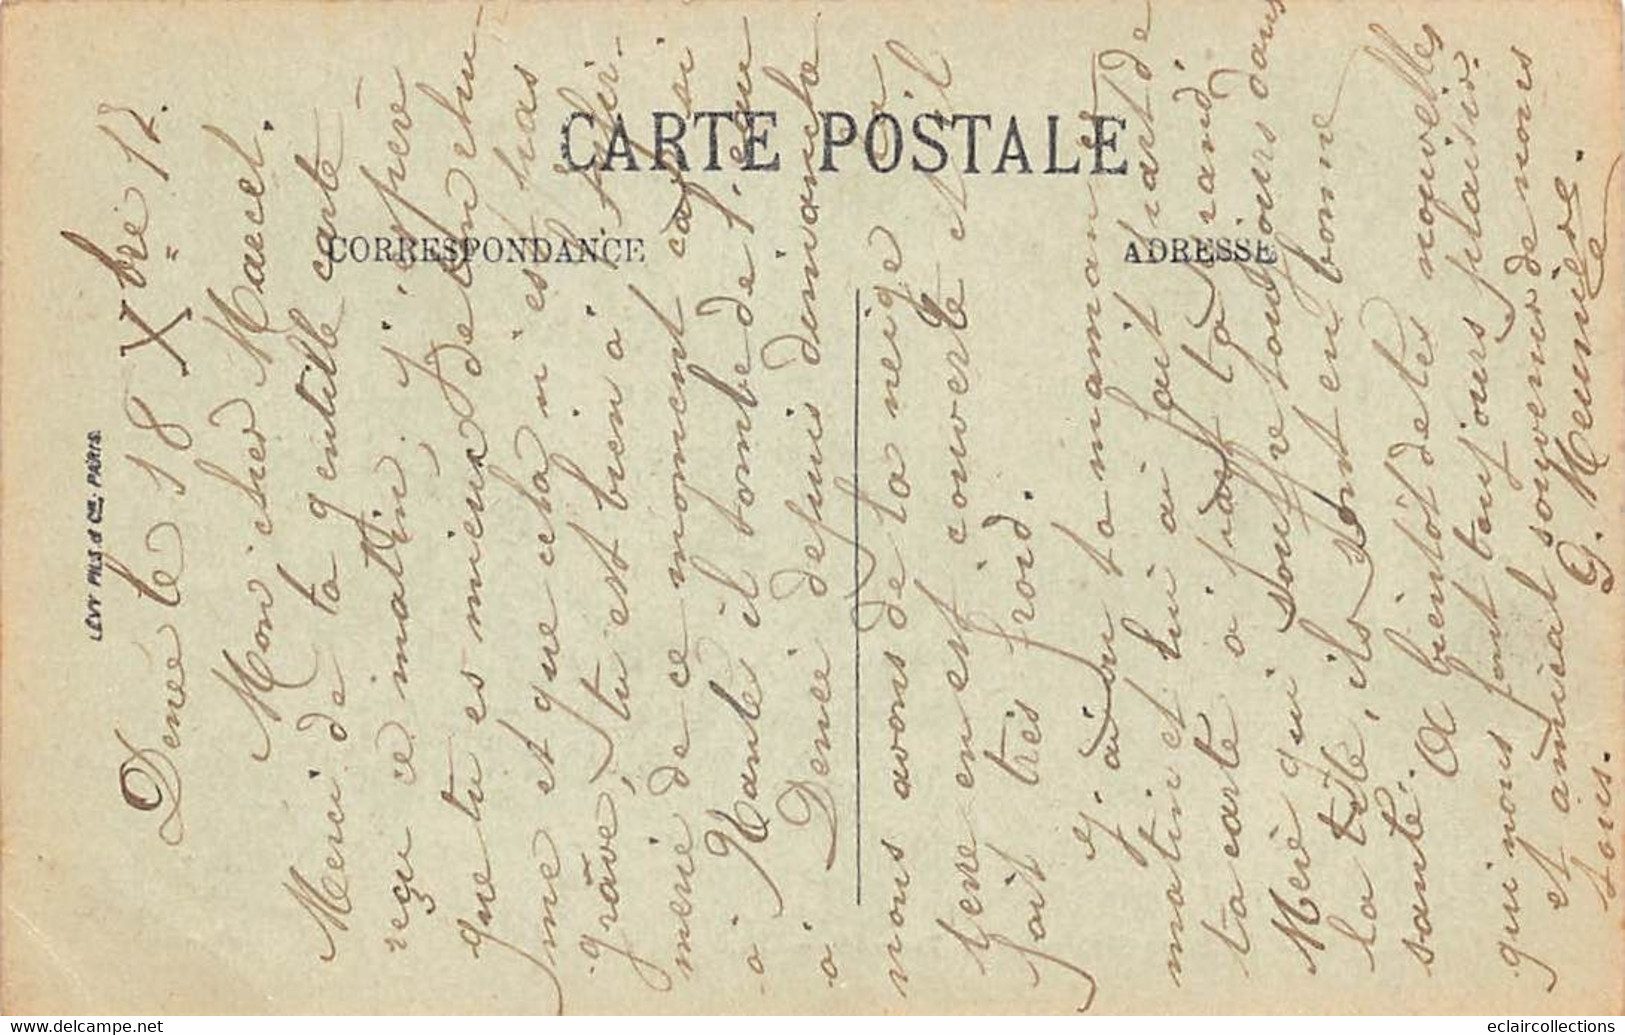 CARTE POSTALE
CORRESPONDANCE
ADRESSE
LÉVY FILS & Cie, PARIS.
Deme le 18 Xbre 17.
Mon cher Marcel.
Merci de ta gentille carte
reçu ce matin, j'espère
que tu es mieux de ton rhu-
me et que cela n'est pas
grâve, tu est bien à l'infir-
merie de ce moment car si
à Nante il tombe de l'eau
à Demé depuis dimanche
nous avons de la neige à
terre en est couverte et il
fait très froid.
J'ai vu ta maman ce
matin et lui ai fait part de
ta carte à ta
Meré qui souffre toujours dans
la tête, ils sont en bonne
santé.
A bientôt de tes nouvelles
qui nous font toujours plaisir.
et amical souvenir de nous
tous.
G. Meunière
eclaircollections
delcampe.net